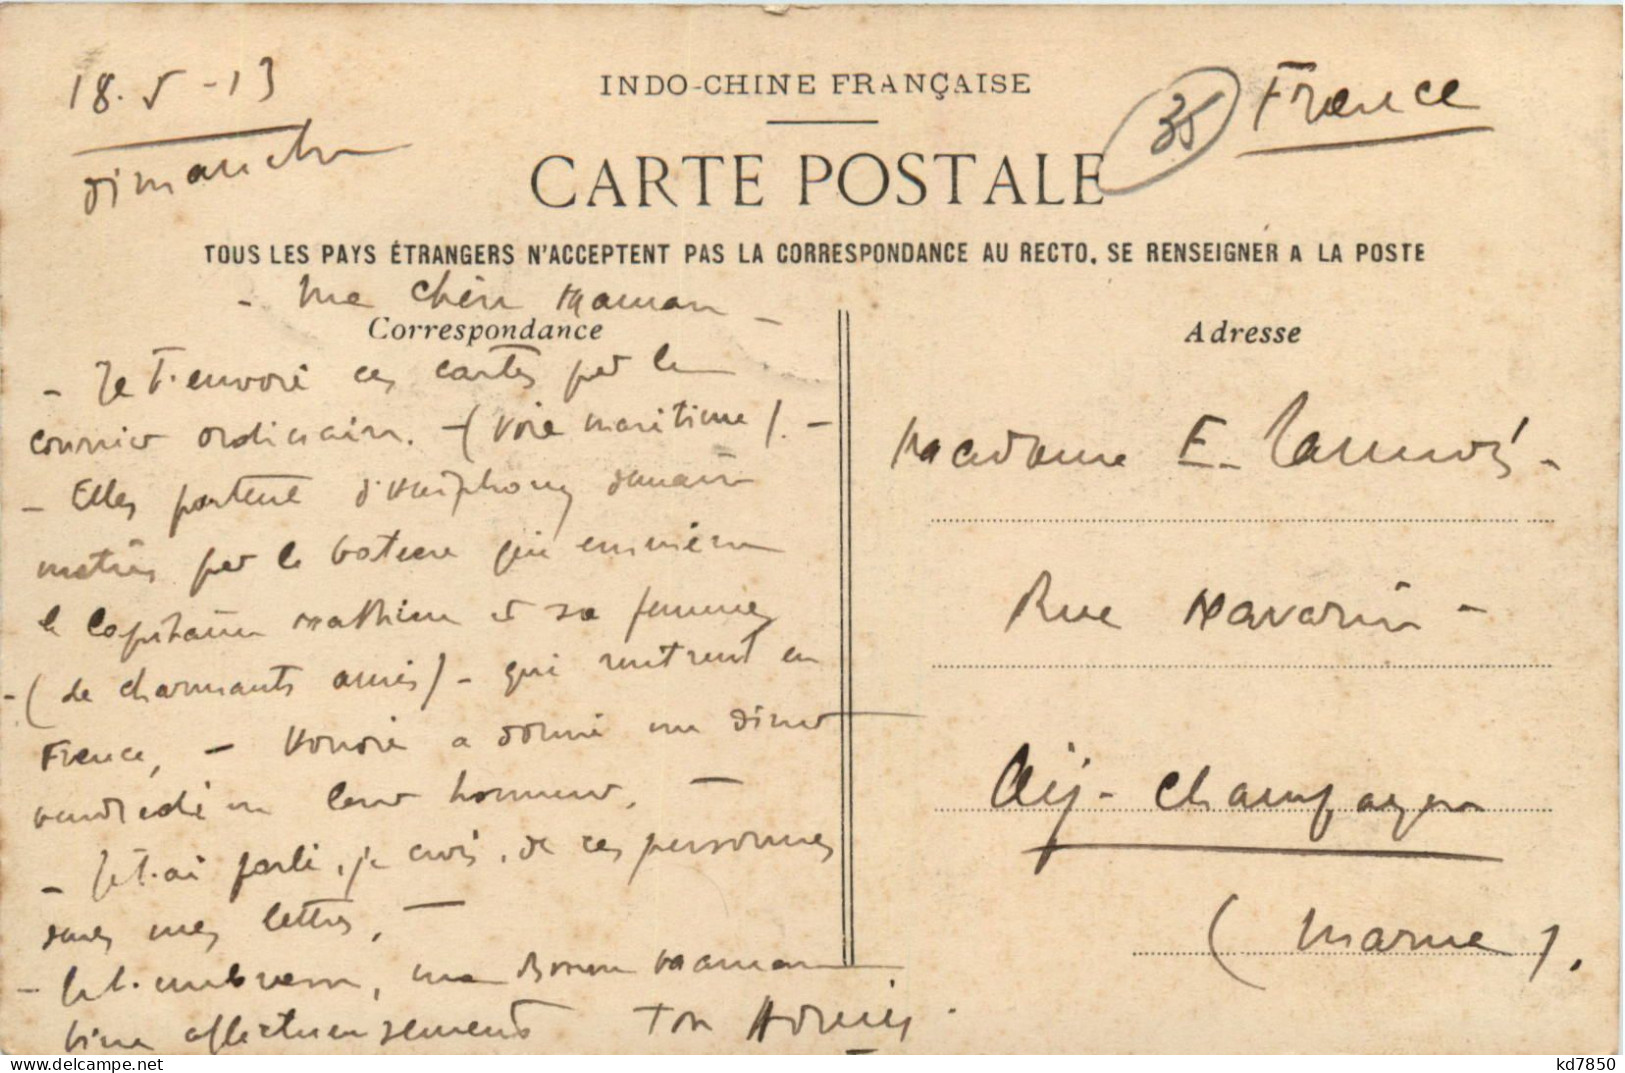 18.5-13
dimanche
INDO-CHINE FRANÇAISE
35
France
CARTE POSTALE
TOUS LES PAYS ÉTRANGERS N'ACCEPTENT PAS LA CORRESPONDANCE AU RECTO, SE RENSEIGNER A LA POSTE
- Ma chère Maman -
Correspondance
Adresse
- Je t'envoie ces cartes par le
courrier ordinaire. - (Voie maritime). -
- Elles partent d'Haïphong demain
matin par le bateau qui emmène
le Capitaine Mathieu et sa femme
- (de charmants amis) - qui rentrent en
France, - a donné un dîner
vendredi en leur honneur. -
- Je t'ai parlé, je crois, de ces personnes
dans mes lettres, -
- Je t'embrasse, ma bonne Maman
bien affectueusement Ton
Madame E.
Rue Navarin -
Aÿ - Champagne
(Marne).
kd7850